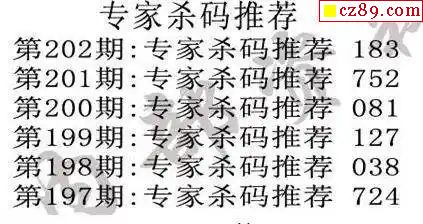 cz89.com
专家杀码推荐
第202期:专家杀码推荐 183
第201期:专家杀码推荐 752
第200期:专家杀码推荐 081
第199期:专家杀码推荐 127
第198期:专家杀码推荐 038
第197期:专家杀码推荐 724